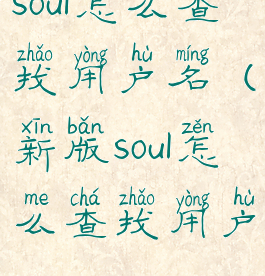 soul怎么查
zhǎo yòng hù míng
找用户名（
xīn bǎn zěn
新版soul怎
me chá zhǎo yòng hù
么查找用户